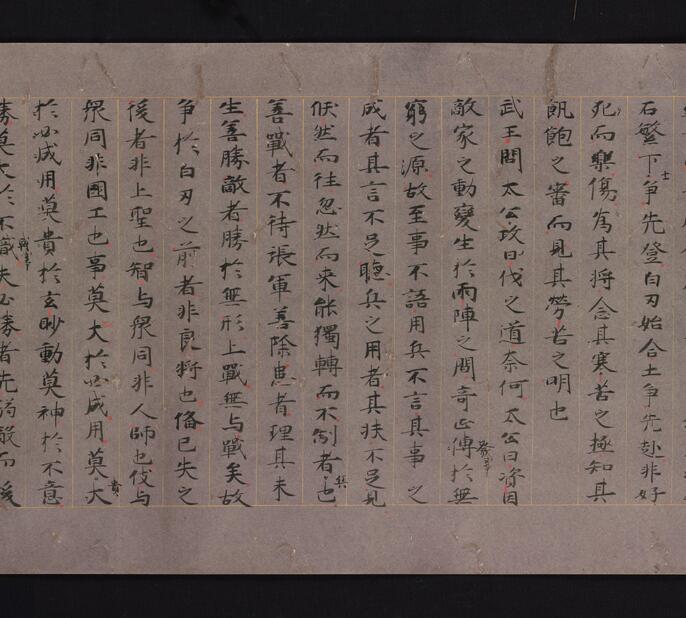 石繁下士争先登白刃始合土争先赴非好
死而樂傷為其將念其寒苦之極知其
飢飽之審而見其勞苦之明也
武王問太公政曰伐之道奈何太公曰資因
敵家之動變生於兩陣之間奇正傳於無
窮之源故至事不語用兵不言其事之
成者其言不足聴兵之用者其状不足見
倐然而往忽然而来能獨轉而不制者也兵
善戰者不待張軍善除患者理其未
生善勝敵者勝於無形上戰無与戰矣故
争於白刃之前者非良将也俻已失之
後者非上聖也智与衆同非人師也伎与
衆同非國工也事莫大於必成用莫大貴
於必成用莫貴於玄眇動莫神於不意
勝莫大於不識夫必勝者先弱敵而後